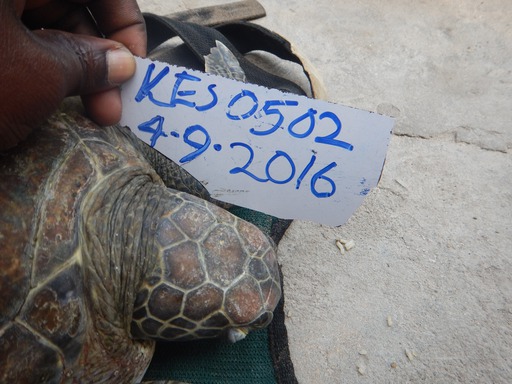 KES 0502
4.9.2016